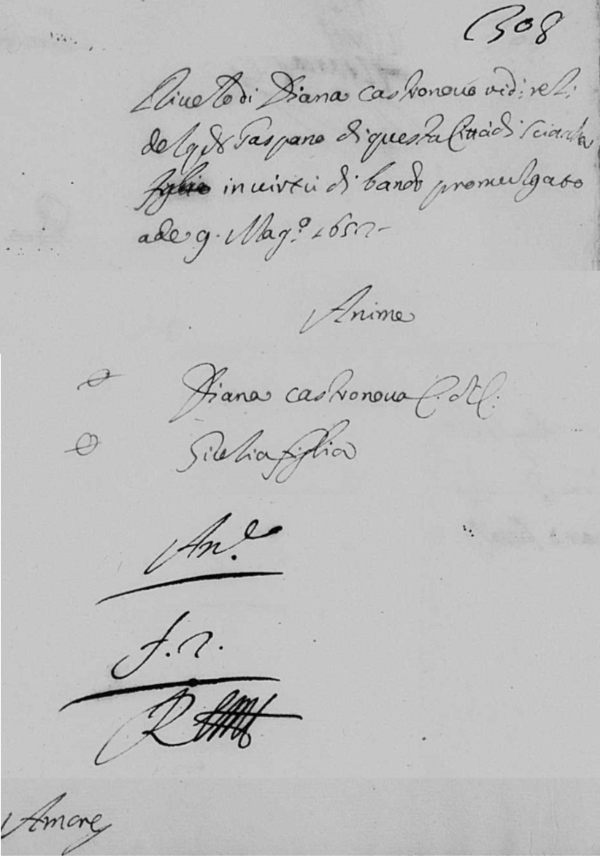 308
Rivelo di Diana Castronovo vid: rel:
del qd Gaspano di questa Citta di Sciacca
in virtù di bando promulgato
a de 9. Mag.o 1652
Anime
Diana Castronova C. di C.
Giulia figlia
An.e
f. 2.
Amore